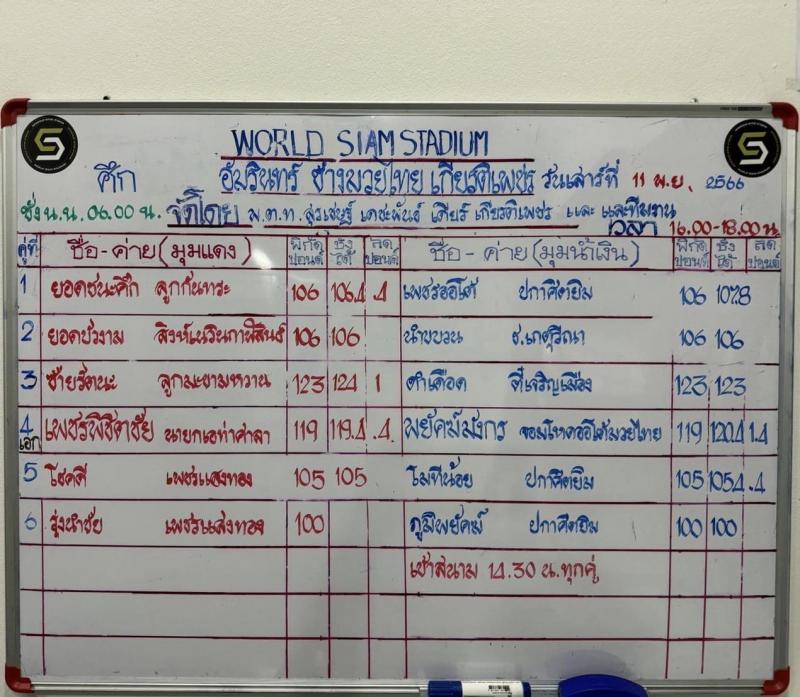 WORLD SIAM STADIUM
ศึก อัมรินทร์ ช้างมวยไทย เกียรติเพชร วันเสาร์ที่ 11 พ.ย. 2566
ชั่ง น.น. 06.00 น. จัดโดย พ.ต.ท. สุรเชษฐ์ เดชะพันธ์ เดียร์ เกียรติเพชร และ และทีมงาน
เวลา 16.00-18.00 น.
คู่ที่ ชื่อ-ค่าย (มุมแดง) พิกัด ปอนด์ ชั่ง ได้ ลด ปอนด์ ชื่อ-ค่าย (มุมน้ำเงิน) พิกัด ปอนด์ ชั่ง ได้ ลด ปอนด์
1 ยอดชนะศึก ลูกกันทระ 106 106.4 .4 เพชรออโต้ ปกาศิตยิม 106 107.8
2 ยอดบัวงาม สิงห์เนวินกาฬสินธุ์ 106 106 106 106
3 ซ้ายรัตนะ ลูกมะขามหวาน 123 124 1 ดำเดือด ตี๋เจริญเมือง 123 123
4 เอก เพชรพิชิตชัย นายกเอท่าศาลา 119 119.4 .4 พยัคฆ์มังกร จอมโหดออโต้มวยไทย 119 120.4 1.4
5 โชคดี เพชรแสงทอง 105 105 โมทีน้อย ปกาศิตยิม 105 105.4 .4
6 รุ่งนำชัย เพชรแสงทอง 100 ภูมิพยัคฆ์ ปกาศิตยิม 100 100
เข้าสนาม 14.30 น. ทุกคู่